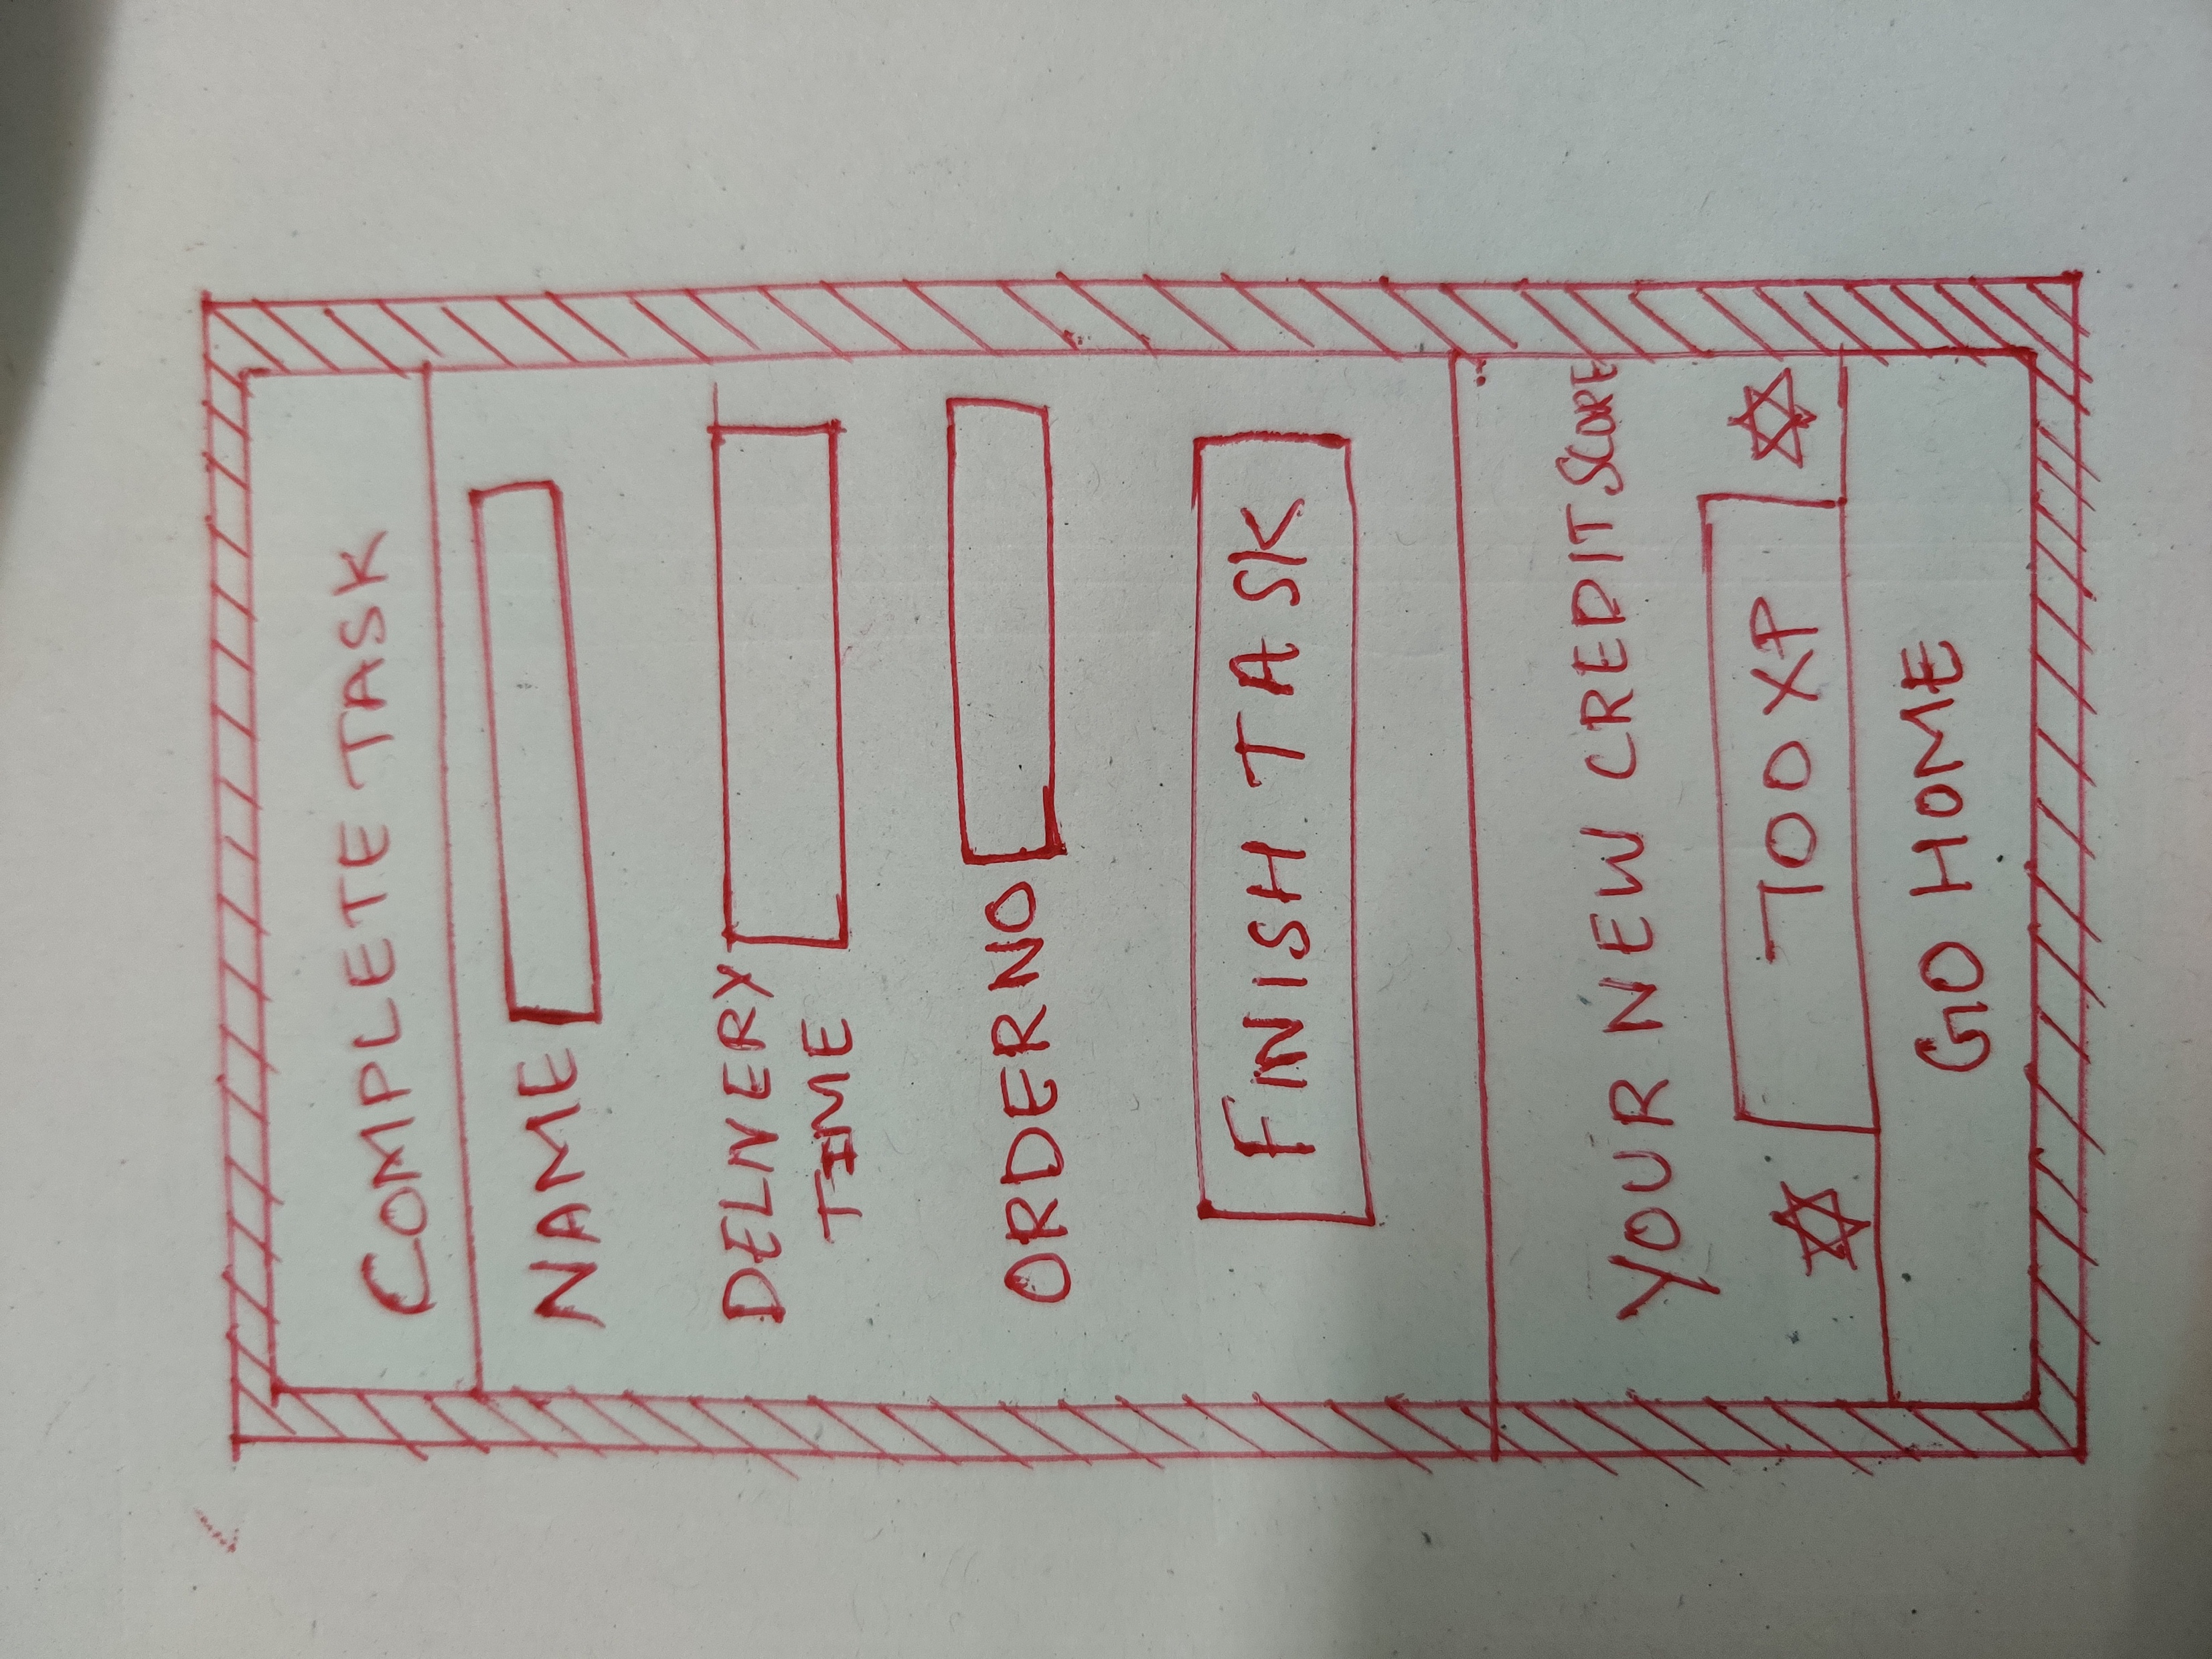 COMPLETE TASK
NAME
DELIVERY
TIME
ORDER NO
FINISH TASK
YOUR NEW CREDIT SCORE
XP
GO HOME